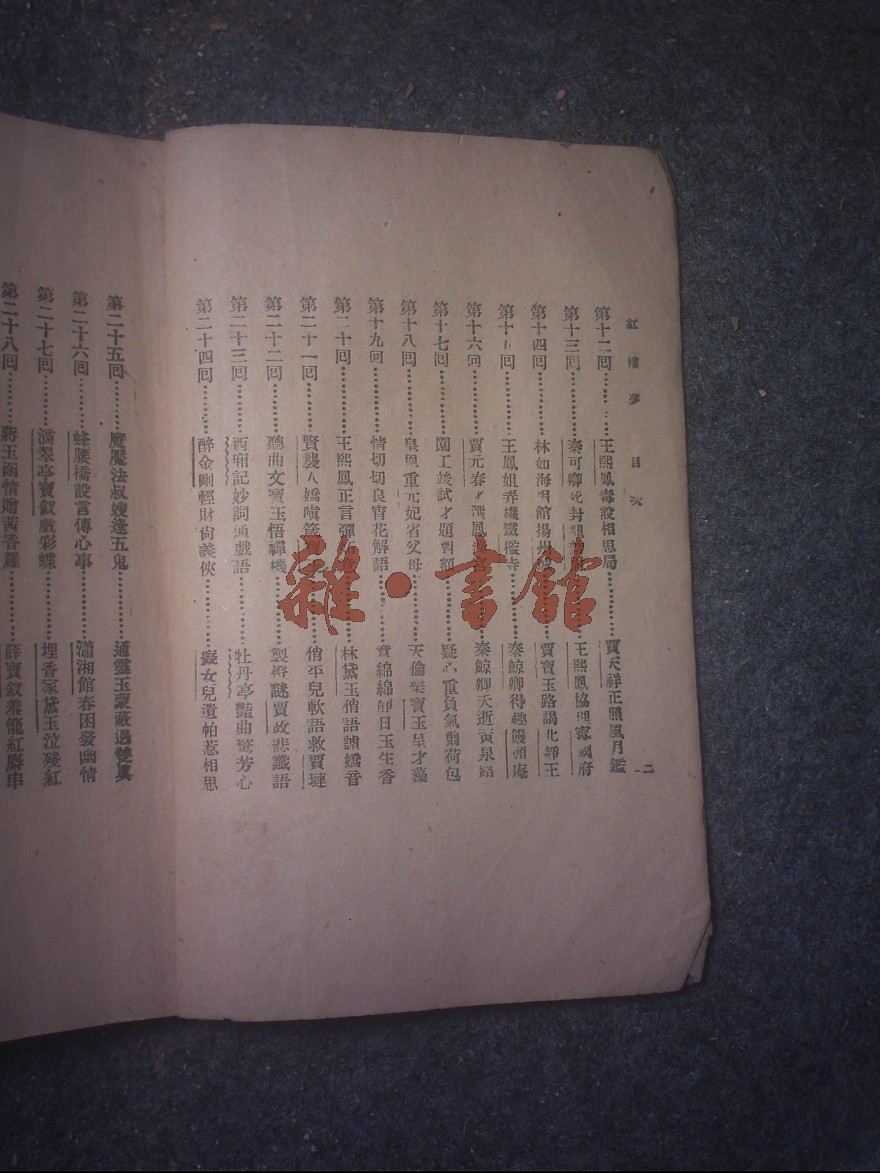 紅樓夢 目次
二
第十二回 王熙鳳毒設相思局 賈天祥正照風月鑑
第十三回 秦可卿死封 王熙鳳協理寧國府
第十四回 林如海捐館揚州 賈寶玉路謁北靜王
第十五回 王鳳姐弄權鐵檻寺 秦鯨卿得趣饅頭庵
第十六回 賈元春才選鳳 秦鯨卿夭逝黃泉路
第十七回 園工竣試才題對額 疑心重負氣剪荷包
第十八回 皇恩重元妃省父母 天倫樂寶玉呈才藻
第十九回 情切切良宵花解語 意綿綿靜日玉生香
第二十回 王熙鳳正言彈 林黛玉俏語謔嬌音
第二十一回 賢襲人嬌嗔箴 俏平兒軟語救賈璉
第二十二回 聽曲文寶玉悟禪機 製燈謎賈政悲讖語
第二十三回 西廂記妙詞通戲語 牡丹亭豔曲警芳心
第二十四回 醉金剛輕財尚義俠 癡女兒遺帕惹相思
第二十五回 魘魔法叔嫂逢五鬼 通靈玉蒙蔽遇雙真
第二十六回 蜂腰橋設言傳心事 瀟湘館春困發幽情
第二十七回 滴翠亭寶釵戲彩蝶 埋香冢黛玉泣殘紅
第二十八回 蔣玉函情贈茜香羅 薛寶釵羞籠紅麝串
雜·書館